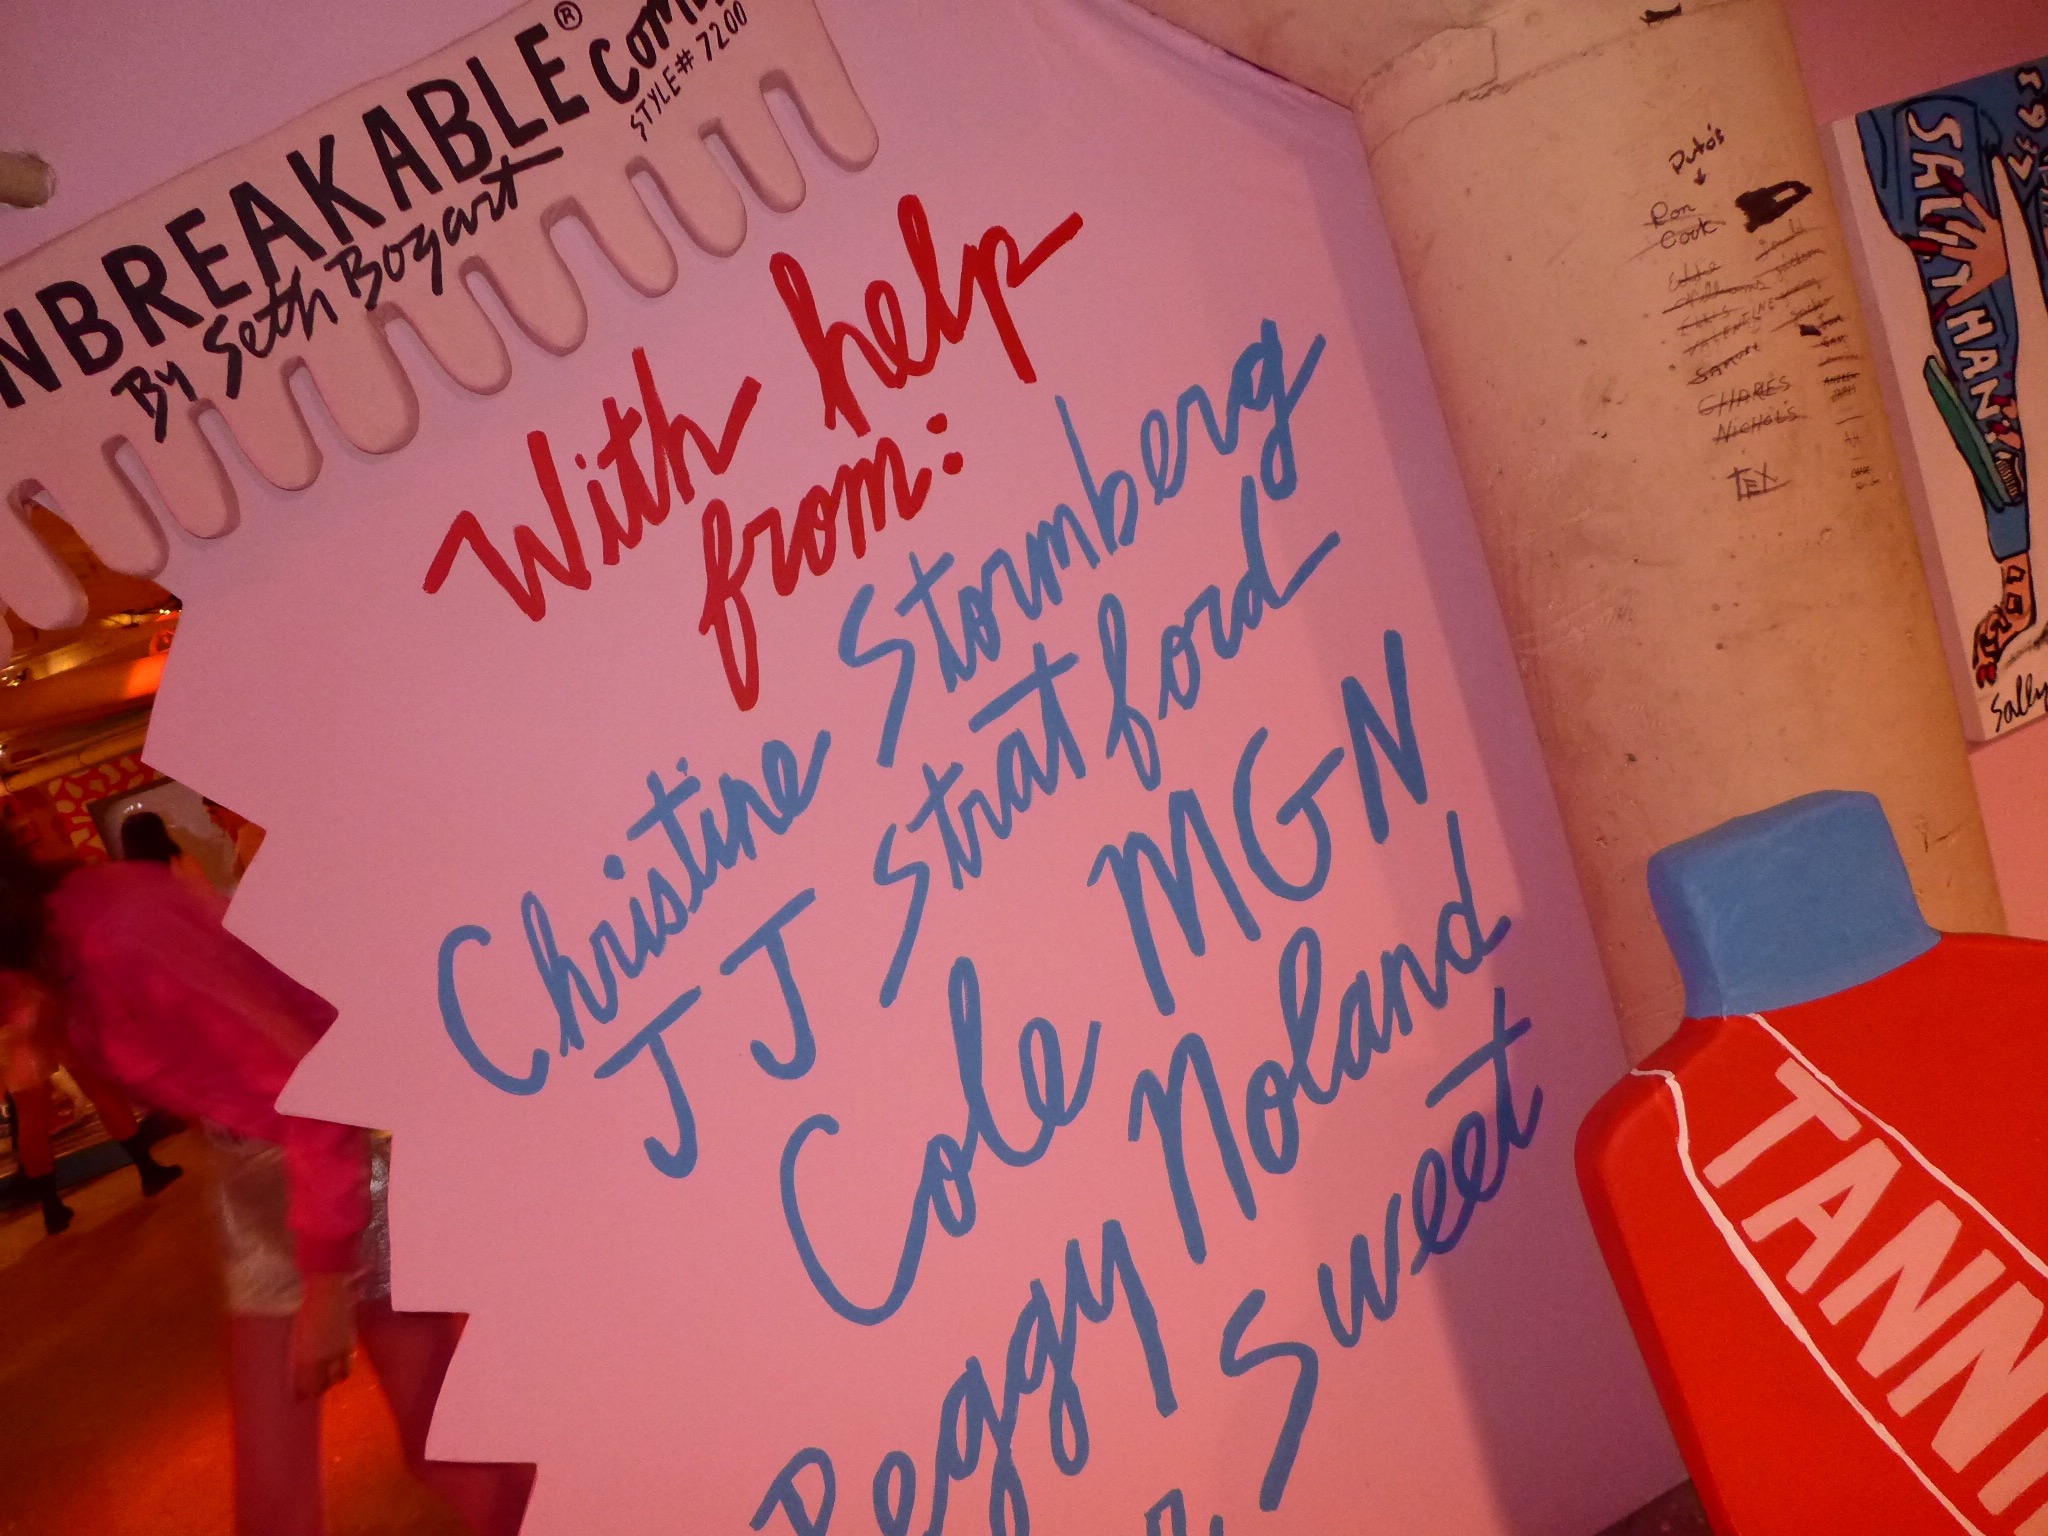 NBREAKABLE® COM
STYLE# 7200
By Seth Bogart
With help
from:
Christine Stormberg
JJ Stratford
Cole MGN
Peggy Noland
Sweet
Ron
Cook
VALENTINE
CHARLES
NICHOLS
TEX
SALLY HAN
Sally
TANN